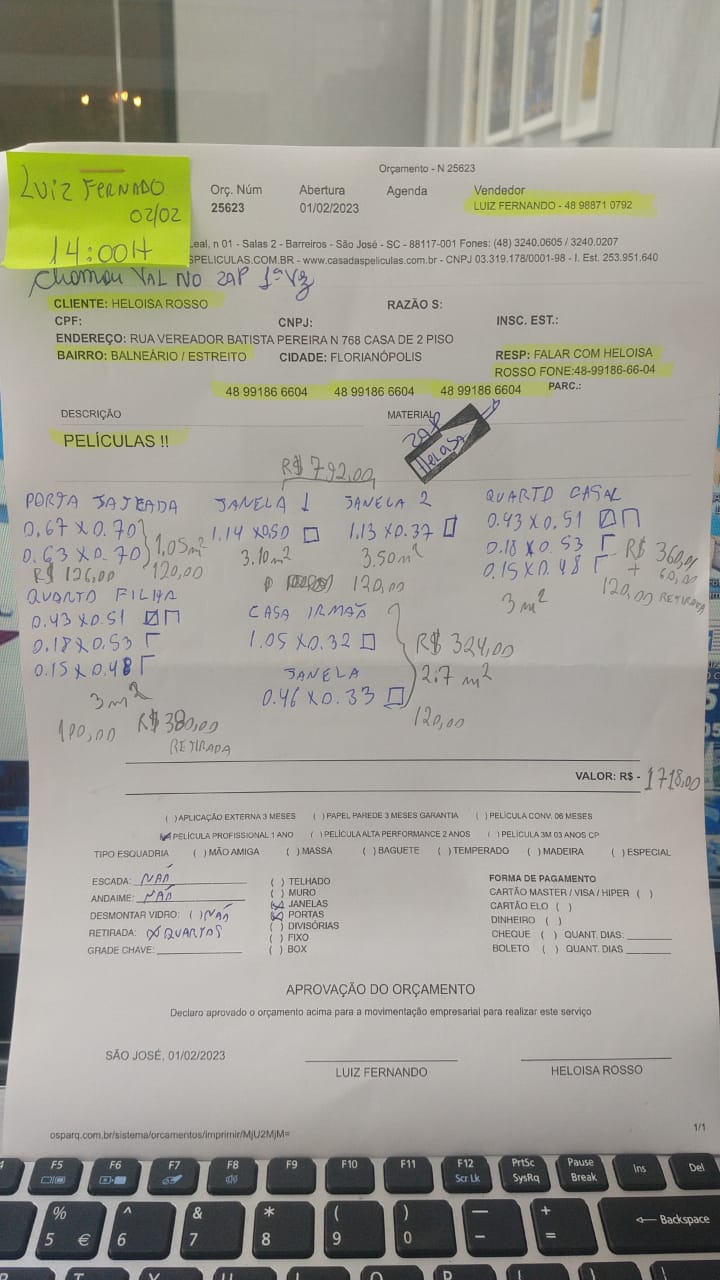 Orçamento - N 25623
LUIZ FERNADO
02/02
14:00H
Orç. Núm Abertura Agenda Vendedor
25623 01/02/2023 LUIZ FERNANDO - 48 98871 0792
Leal, n 01 - Salas 2 - Barreiros - São José - SC - 88117-001 Fones: (48) 3240.0605 / 3240.0207
SPELICULAS.COM.BR - www.casadaspeliculas.com.br - CNPJ 03.319.178/0001-98 - I. Est. 253.951.640
chamou VAL NO ZAP 1ª Vez
CLIENTE: HELOISA ROSSO RAZÃO S:
CPF: CNPJ: INSC. EST.:
ENDEREÇO: RUA VEREADOR BATISTA PEREIRA N 768 CASA DE 2 PISO
BAIRRO: BALNEÁRIO / ESTREITO CIDADE: FLORIANÓPOLIS RESP: FALAR COM HELOISA
ROSSO FONE:48-99186-66-04
48 99186 6604 48 99186 6604 48 99186 6604 PARC.:
DESCRIÇÃO MATERIAL
ZAP
Heloisa
PELÍCULAS !!
R$ 792,00
PORTA SAJEADA JANELA 1 JANELA 2 QUARTO CASAL
0.67 X 0.70 1.14 X 0.50 1.13 X 0.37 0.43 X 0.51
0.63 X 0.70 1,05m² 3.10m² 3.50m² 0.18 X 0.53 R$ 360,00
R$ 126,00 120,00 120,00 0.15 X 0.48 + 60,00
3m² 120,00 RETIRADA
QUARTO FILHA CASA IRMÃO
0.43 X 0.51 1.05 X 0.32 R$ 324,00
0.18 X 0.53 JANELA 2.7 m²
0.15 X 0.48 0.46 X 0.33 120,00
3m²
100,00 R$ 380,00
RETIRADA
VALOR: R$ - 1718,00
( ) APLICAÇÃO EXTERNA 3 MESES ( ) PAPEL PAREDE 3 MESES GARANTIA ( ) PELÍCULA CONV. 06 MESES
PELÍCULA PROFISSIONAL 1 ANO ( ) PELÍCULA ALTA PERFORMANCE 2 ANOS ( ) PELÍCULA 3M 03 ANOS CP
TIPO ESQUADRIA ( ) MÃO AMIGA ( ) MASSA ( ) BAGUETE ( ) TEMPERADO ( ) MADEIRA ( ) ESPECIAL
ESCADA: NÃO ( ) TELHADO FORMA DE PAGAMENTO
ANDAIME: NÃO ( ) MURO CARTÃO MASTER / VISA / HIPER ( )
DESMONTAR VIDRO: ( ) NÃO (X) JANELAS CARTÃO ELO ( )
RETIRADA: (X) QUARTOS (X) PORTAS DINHEIRO ( )
GRADE CHAVE: ( ) DIVISÓRIAS CHEQUE ( ) QUANT. DIAS:
( ) FIXO BOLETO ( ) QUANT. DIAS
( ) BOX
APROVAÇÃO DO ORÇAMENTO
Declaro aprovado o orçamento acima para a movimentação empresarial para realizar este serviço
SÃO JOSÉ, 01/02/2023
LUIZ FERNANDO HELOISA ROSSO
osparq.com.br/sistema/orcamentos/imprimir/MjU2MjM= 1/1
F5 F6 F7 F8 F9 F10 F11 F12 PrtSc Pause Ins Del
Scr Lk SysRq Break
% ^ & * ( ) — +
5 € 6 7 8 9 0 - = Backspace